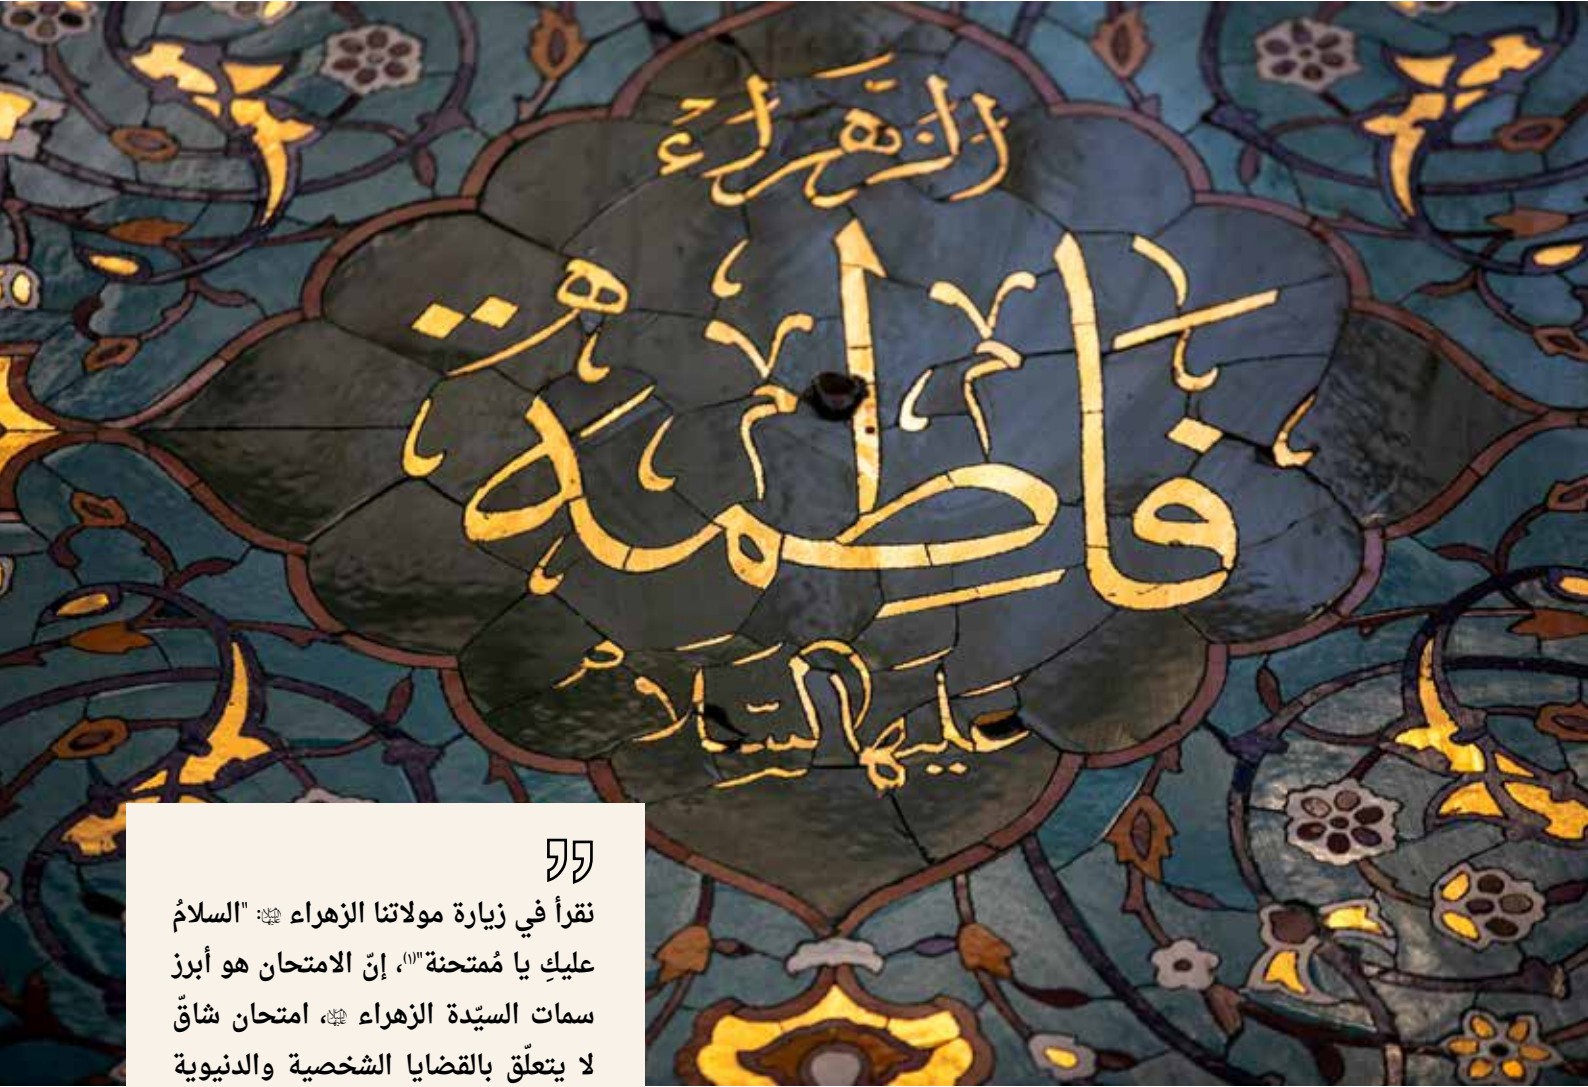 الزَّهراءُ
يا فاطِمةُ
عَلَيها السَّلامُ
نقرأ في زيارة مولاتنا الزهراء ﷺ: "السلامُ
عليكِ يا مُمتحنة"(١)، إنّ الامتحان هو أبرز
سمات السيّدة الزهراء، امتحان شاقّ
لا يتعلّق بالقضايا الشخصية والدنيوية